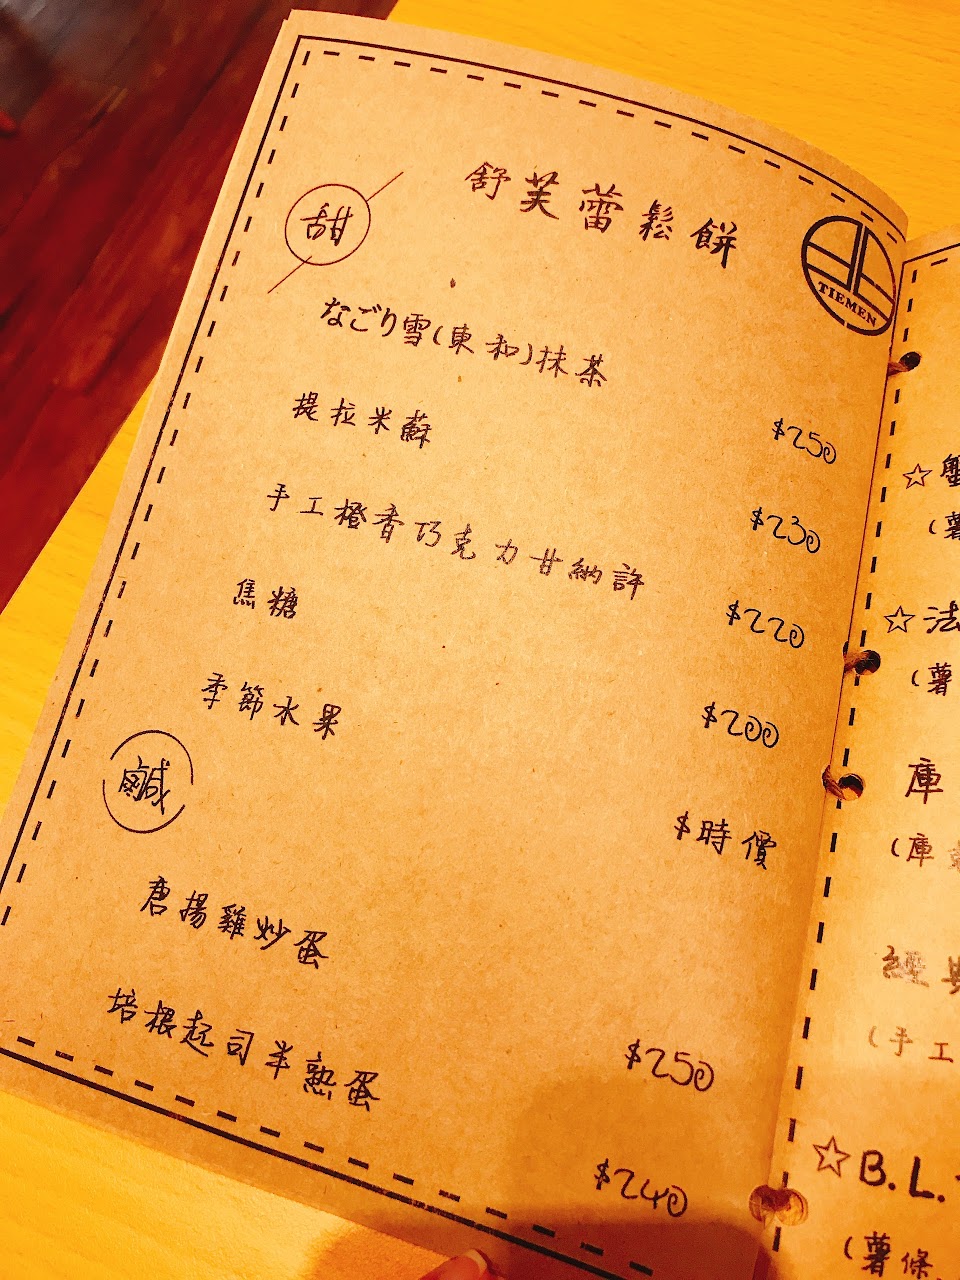 舒芙蕾鬆餅
TIEMEN
甜
なごり雪(東和)抹茶
$250
提拉米蘇
$230
手工橙香巧克力甘納許
$220
焦糖
$200
季節水果
$時價
鹹
唐揚雞炒蛋
$250
培根起司半熟蛋
$240
☆蟹
(薯
☆法
(薯
庫
(庫
經典
(手工
☆B.L.
(薯條